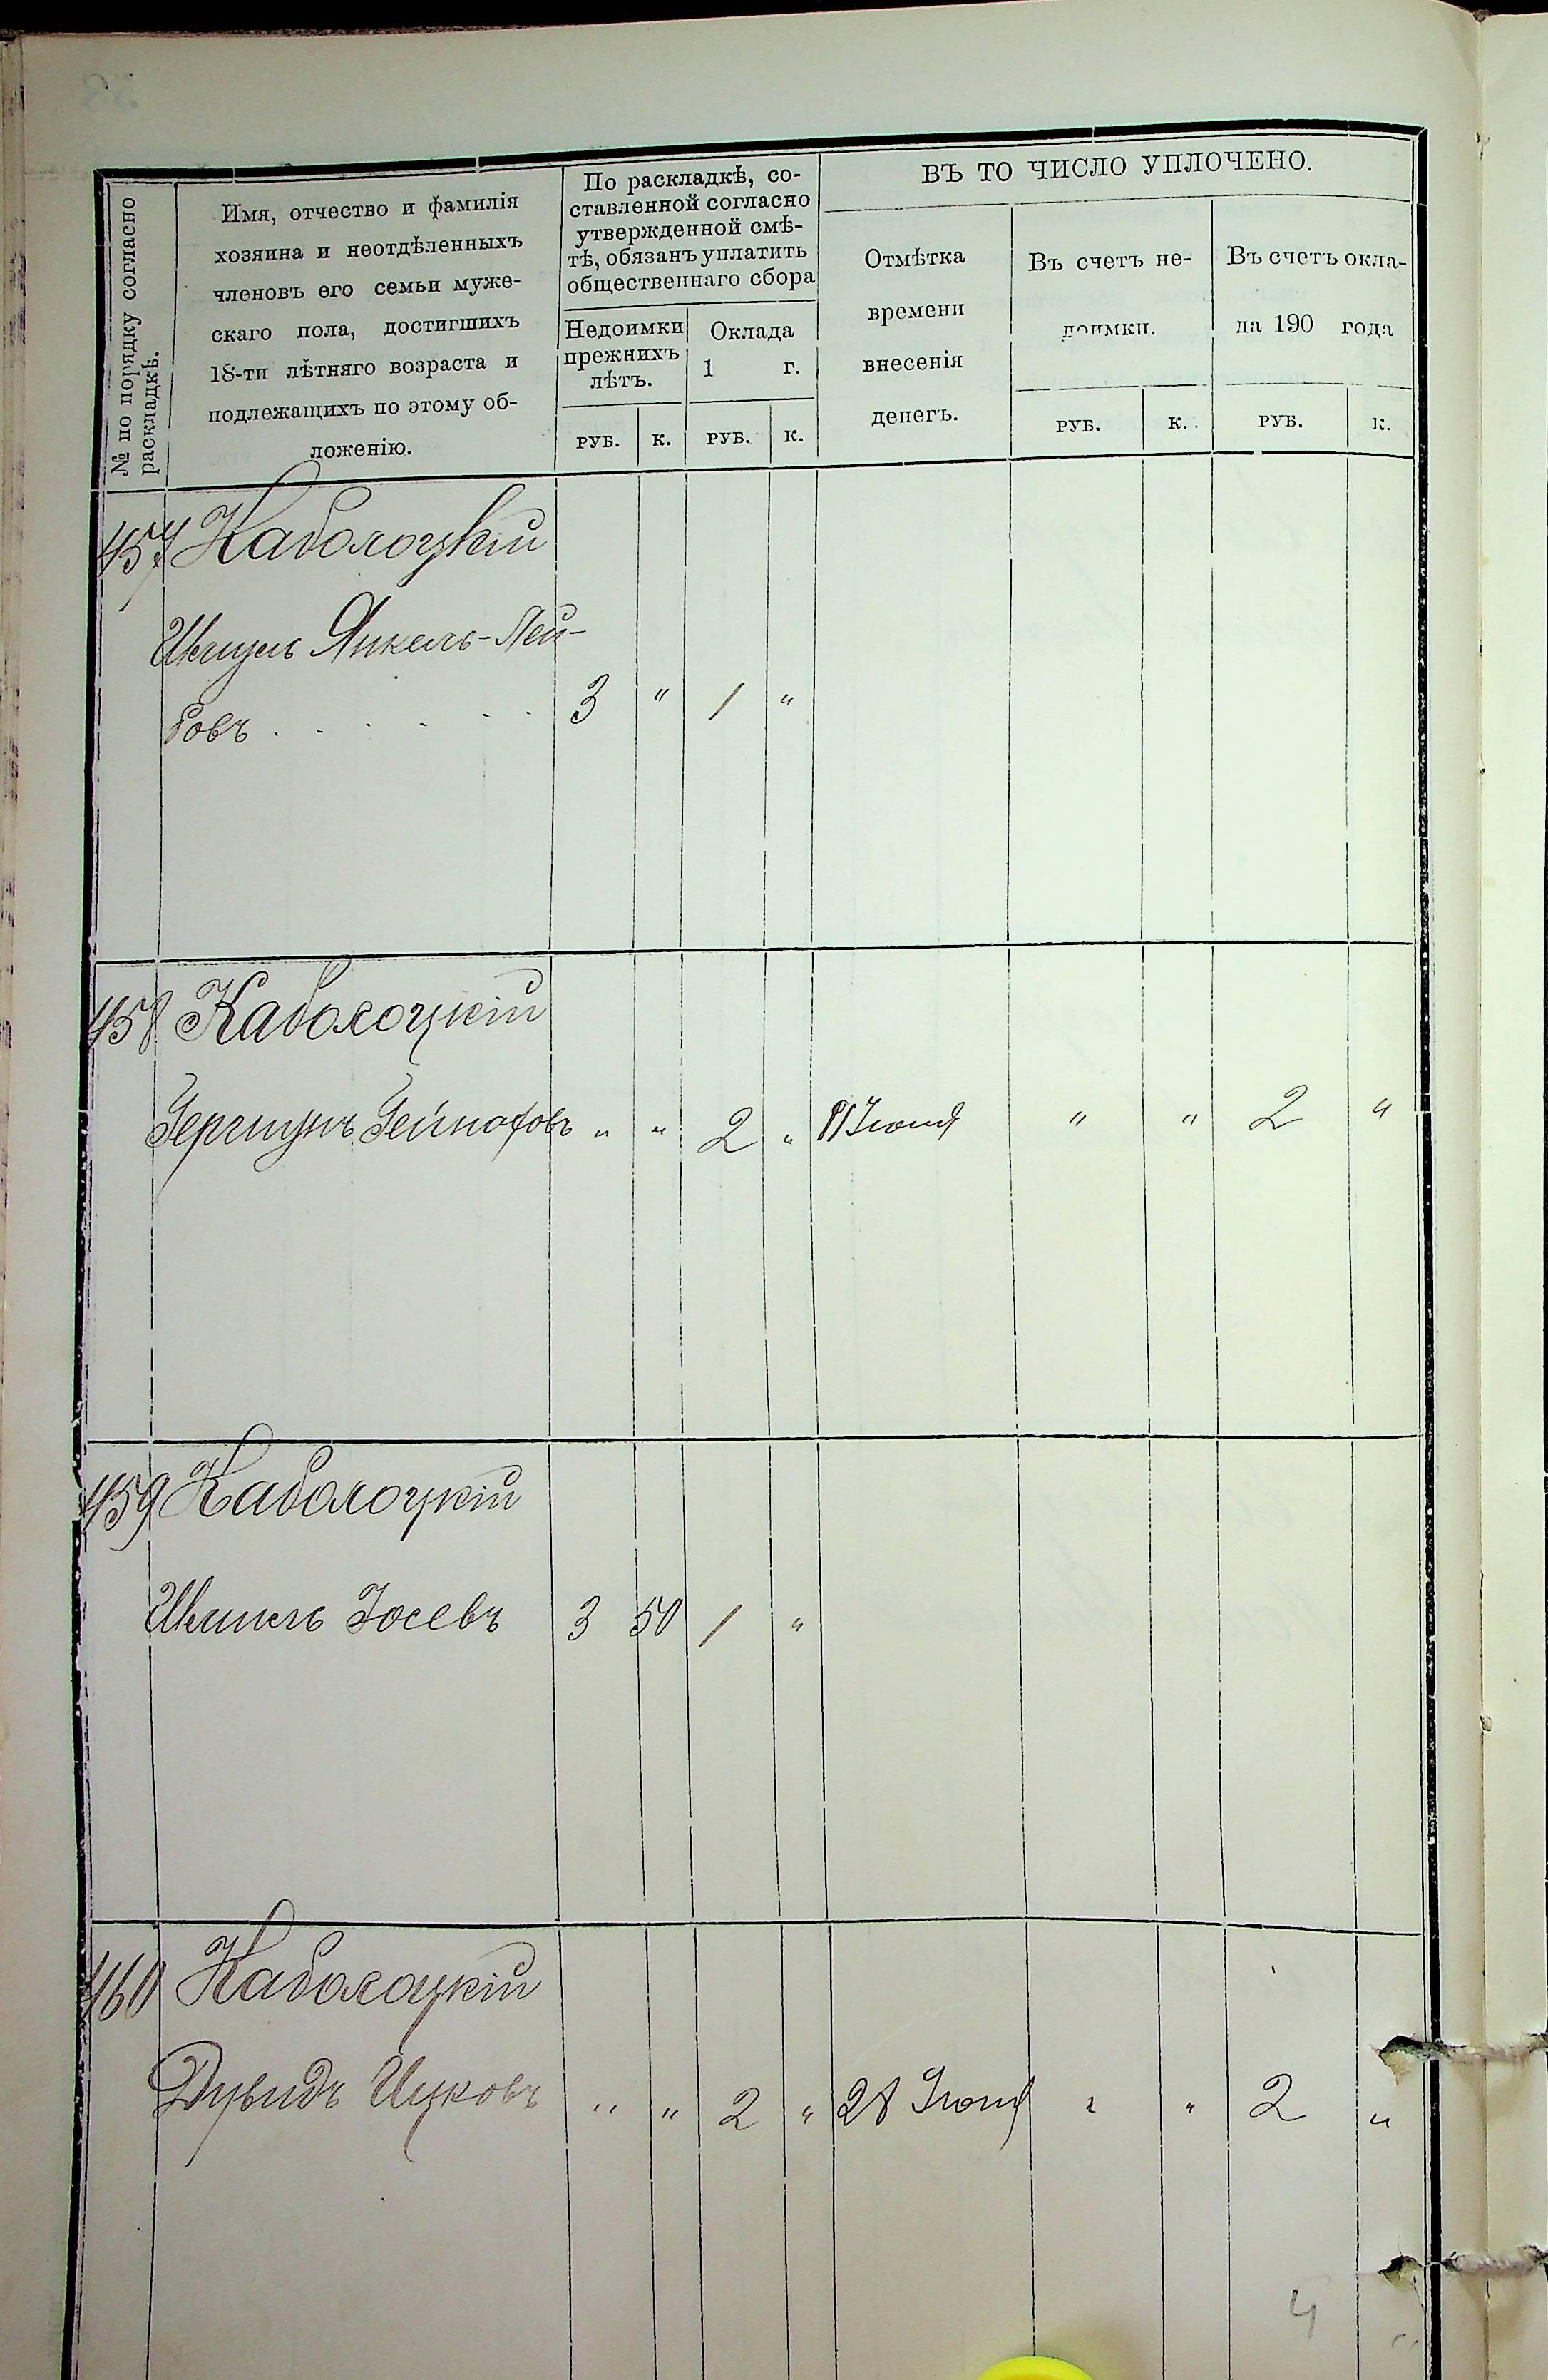 ВЪ ТО ЧИСЛО УПЛОЧЕНО.
№ по порядку согласно
раскладкѣ.
Имя, отчество и фамилія
хозяина и неотдѣленныхъ
членовъ его семьи муже-
скаго пола, достигшихъ
18-ти лѣтняго возраста и
подлежащихъ по этому об-
ложенію.
По раскладкѣ, со-
ставленной согласно
утвержденной смѣ-
тѣ, обязанъ уплатить
общественнаго сбора
Недоимки
прежнихъ
лѣтъ.
Оклада
1 г.
Отмѣтка
времени
внесенія
денегъ.
Въ счетъ не-
доимки.
Въ счетъ окла-
на 190 года
РУБ. К. РУБ. К. РУБ. К. РУБ. К.
457 Каболоцкій
Янкель-Лей-
бовъ . . . . . . 3 " 1 "
458 Каболоцкій
Гершунъ " " 2 " Іюня " " 2 "
459 Каболоцкій
Іосевъ 3 50 1 "
460 Каболоцкій
Дувидъ Ицковъ " " 2 " 28 Іюня " " 2 "
4 "